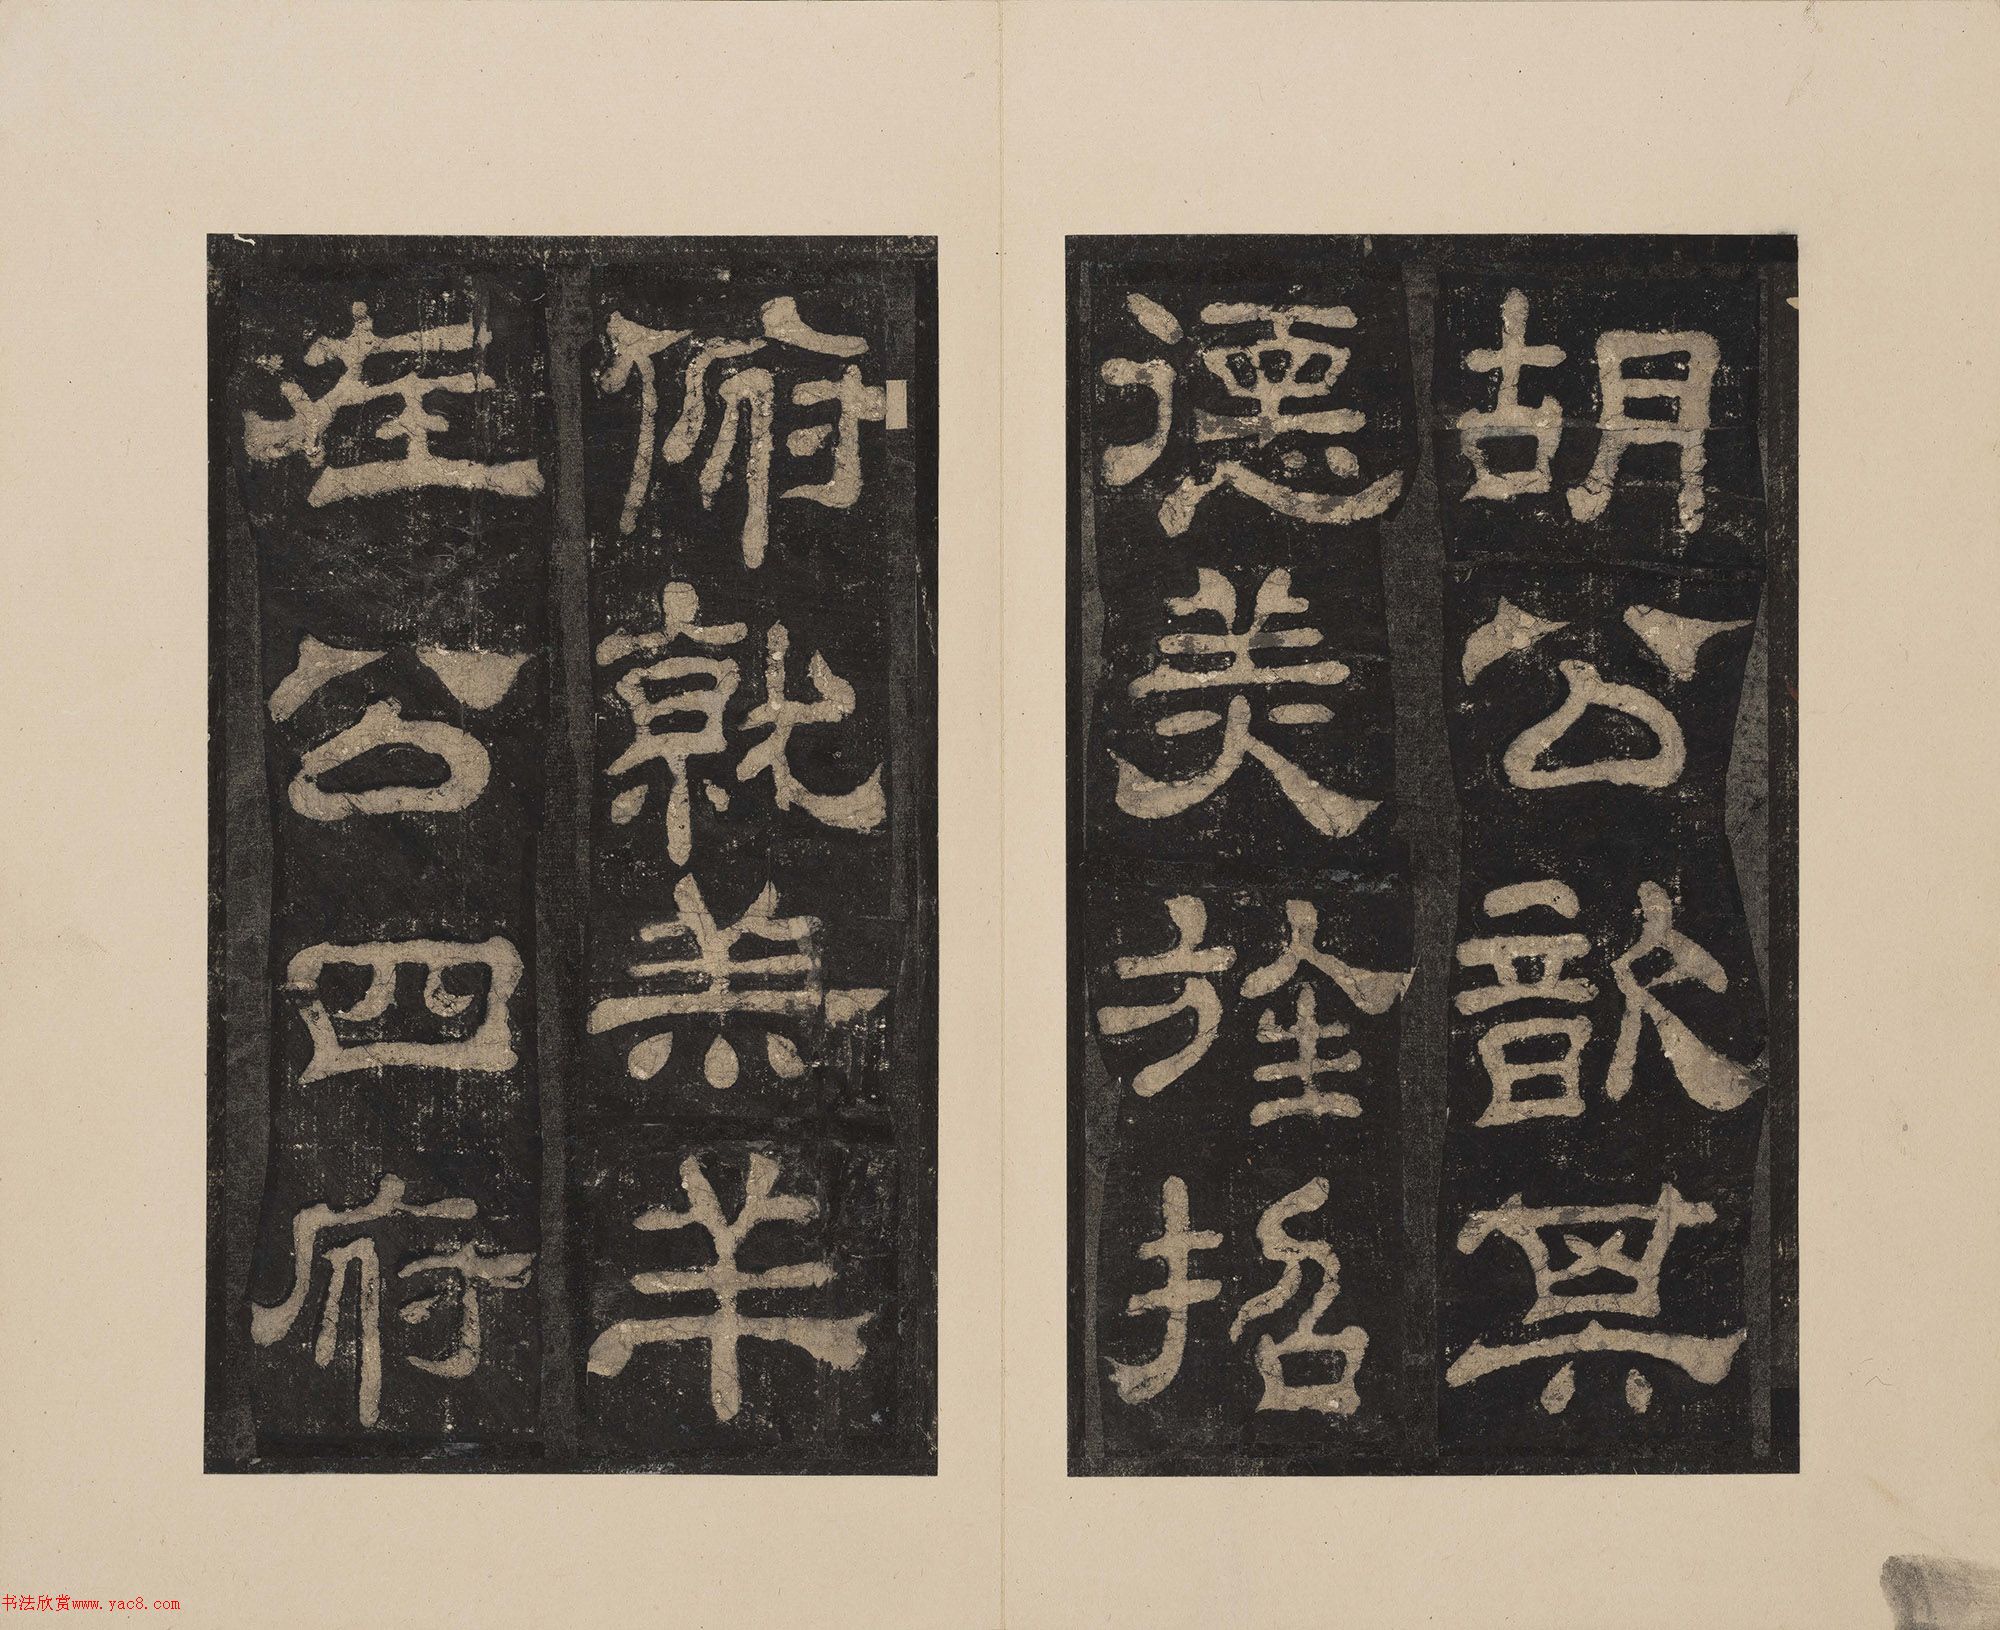 胡公歆其
德美旌招
俯就羔羊
在公四府
书法欣赏www.yac8.com